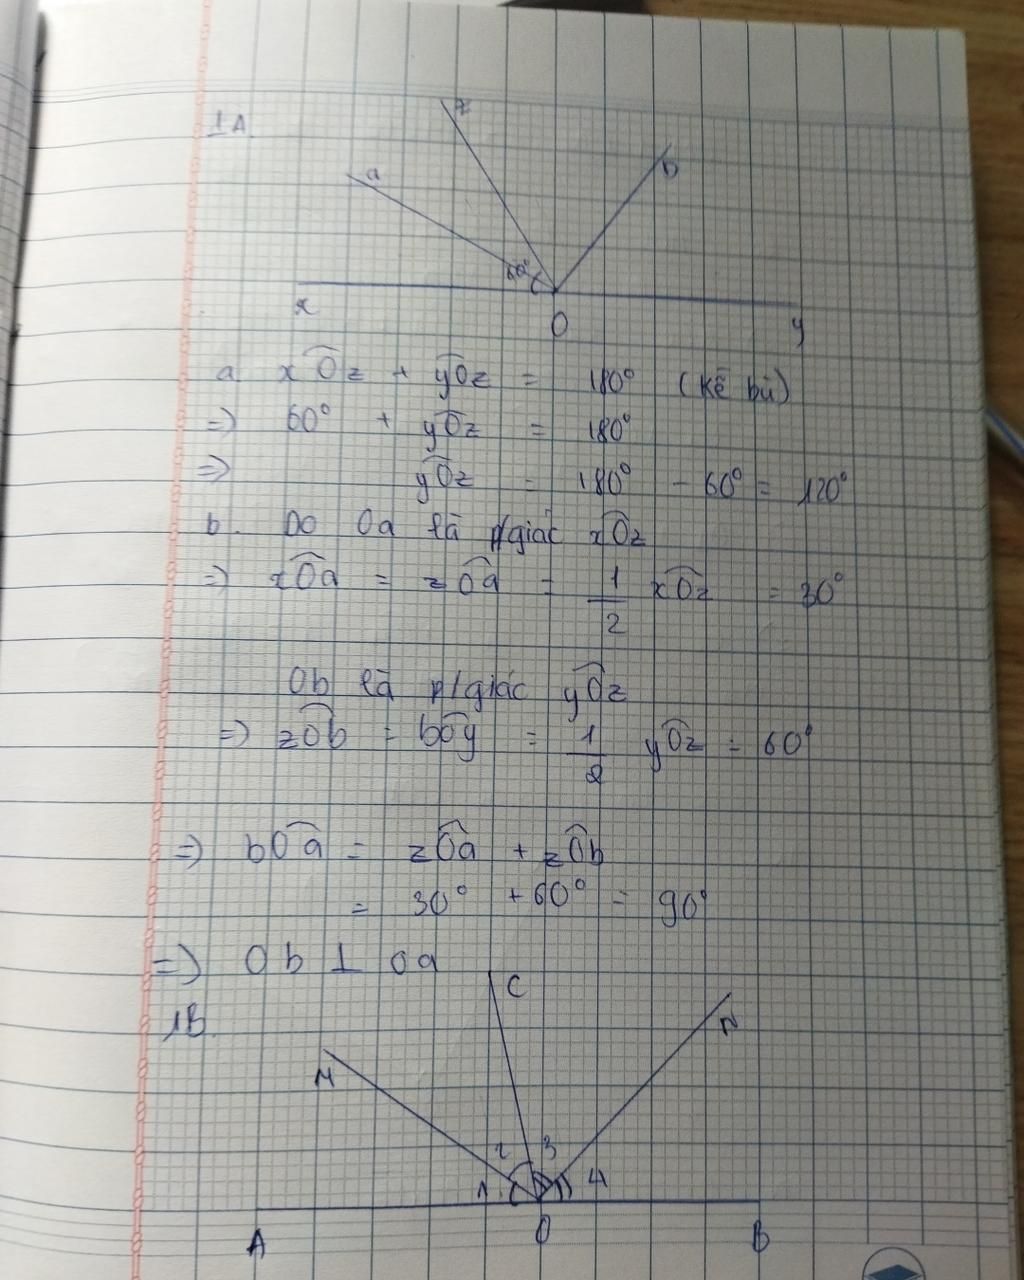 1A.
z
a
b
60°
x
O
y
a. xOz + yOz = 180° (kề bù)
=> 60° + yOz = 180°
=> yOz = 180° - 60° = 120°
b. Do Oa là p/giác xOz
=> xOa = zOa = 1/2 xOz = 30°
Ob là p/giác yOz
=> zOb = bOy = 1/2 yOz = 60°
=> bOa = zOa + zOb
= 30° + 60° = 90°
=> Ob ⊥ Oa
C
1B.
N
M
2 3
1 4
A O B